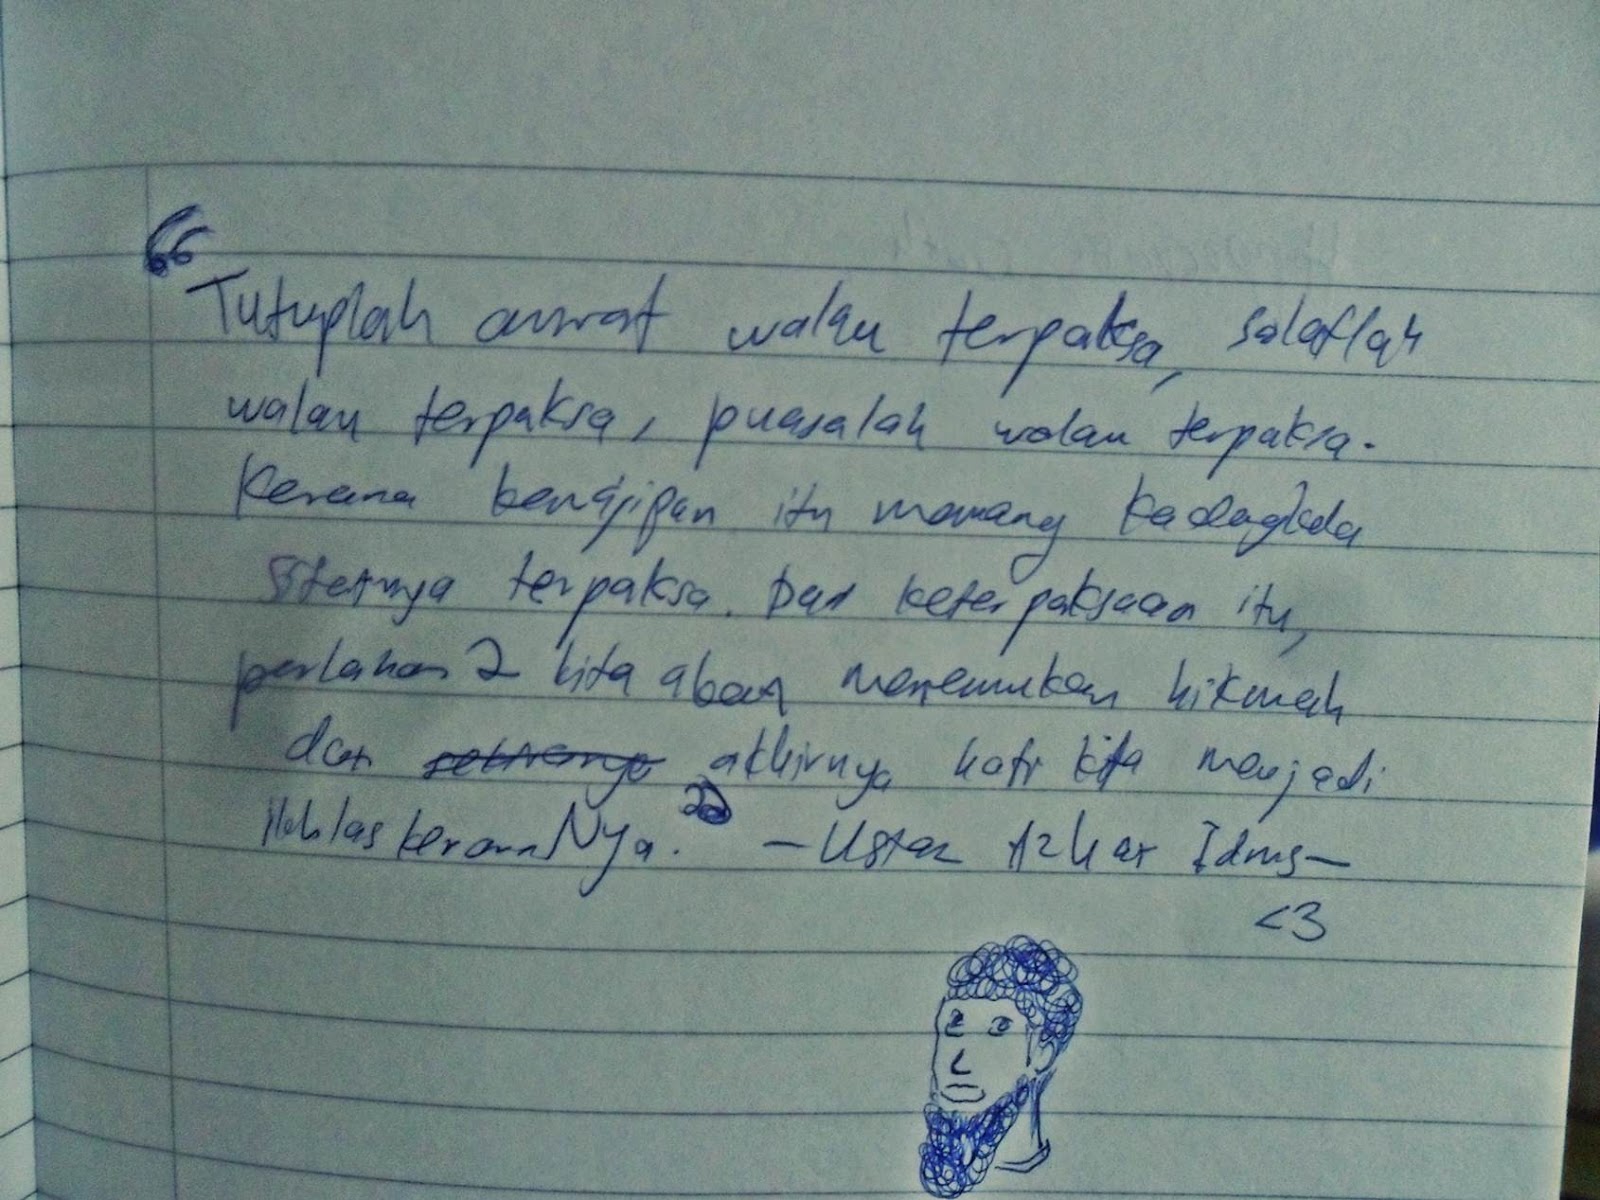 "Tutuplah aurat walau terpaksa, solatlah
walau terpaksa, puasalah walau terpaksa.
Kerana kewajipan itu memang kadangkala
sifatnya terpaksa. Dan keterpaksaan itu,
perlahan2 kita akan menemukan hikmah
dan akhirnya hati kita menjadi
ikhlas keranaNya." -Ustaz Azhar Idrus-
<3